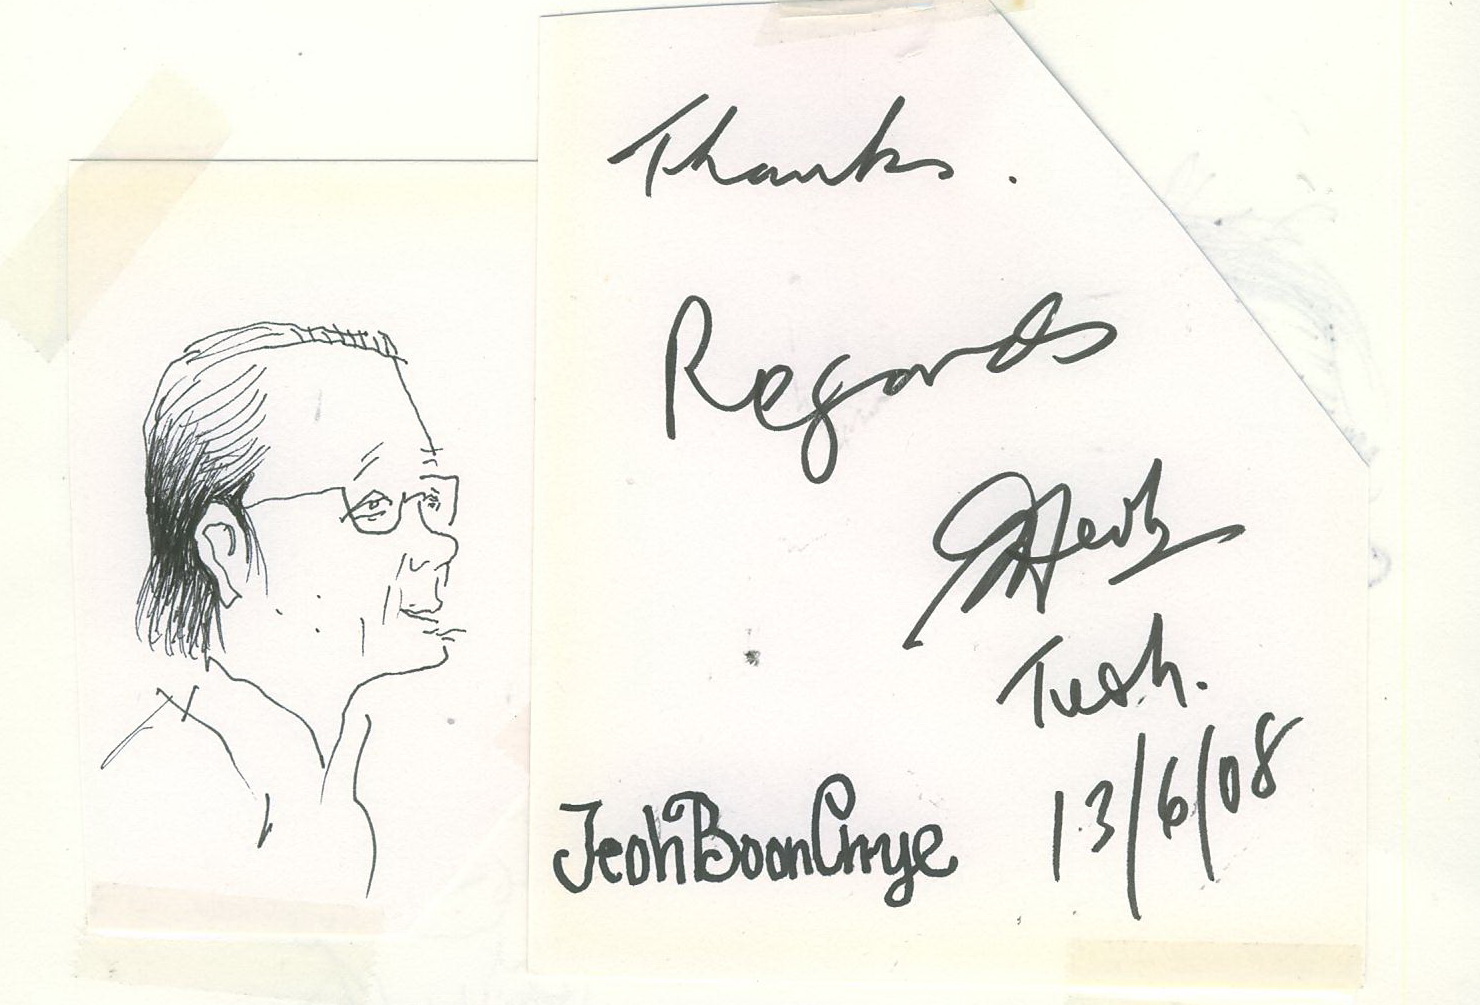 Thanks.
Regards
Teoh.
13/6/08
JeohBoonChye